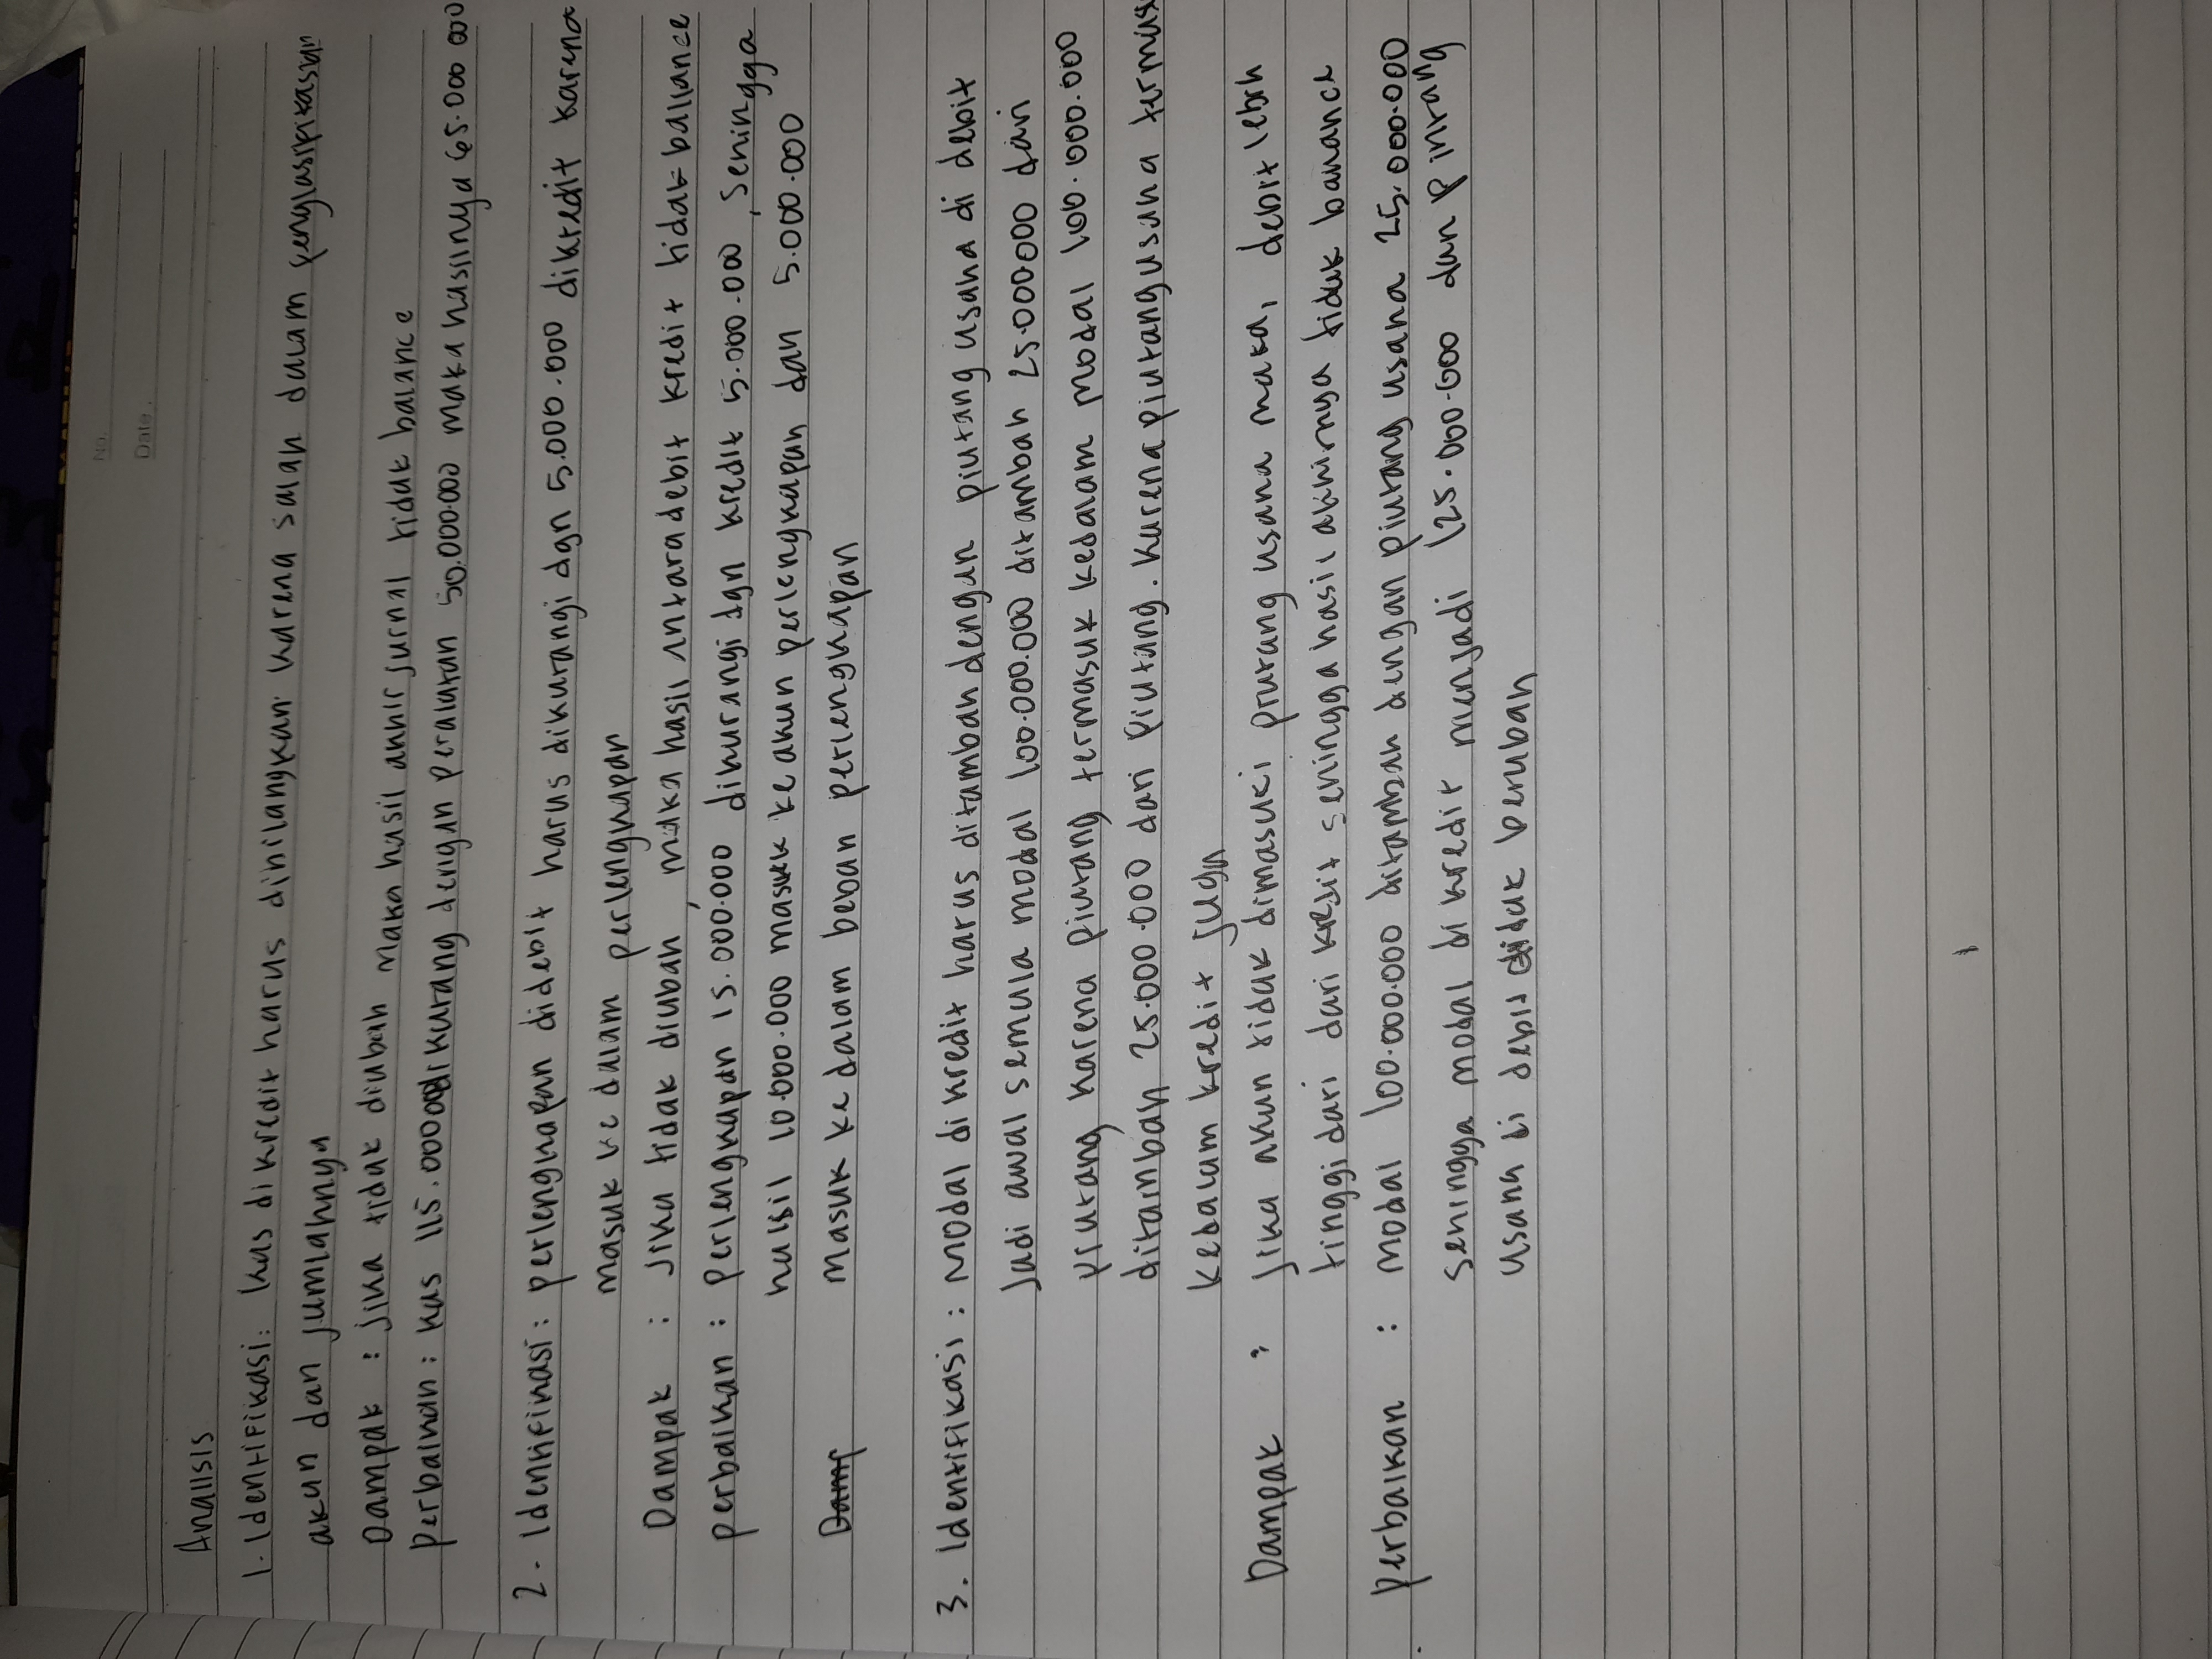 No.
Date.
Analisis
1. Identifikasi: kas di kredit harus dihilangkan karena salah dalam pengklasifikasian
akun dan jumlahnya
Dampak : jika tidak diubah maka hasil akhir jurnal tidak balance
Perbaikan : kas 115.000 dikurang dengan peralatan 50.000.000 maka hasilnya 65.000 000
2. Identifikasi: perlengkapan didebit harus dikurangi dgn 5.000.000 dikredit karena
masuk ke dalam perlengkapan
Dampak : jika tidak diubah, maka hasil antara debit kredit tidak ballance
perbaikan : perlengkapan 15.000.000 dikurangi dgn kredit 5.000.000, sehingga
hasil 10.000.000 masuk ke akun perlengkapan dan 5.000.000
Damp masuk ke dalam beban perlengkapan
3. Identifikasi : Modal di kredit harus ditambah dengan piutang usaha di debit
Jadi awal semula modal 100.000.000 ditambah 25.000000 dari
piutang karena piutang termasuk kedalam modal 100.000.000
ditambah 25.000.000 dari piutang. Karena piutang usaha termasu
kedalam kredit juga
Dampak : jika akun tidak dimasuki piutang usaha maka, debit lebih
tinggi dari kredit sehingga hasil akhirnya tidak banance
perbaikan : modal 100.000.000 ditambah dengan piutang usaha 25.000.000
sehingga modal di kredit menjadi 125.000.000 dan piutang
usaha di debit tidak berubah